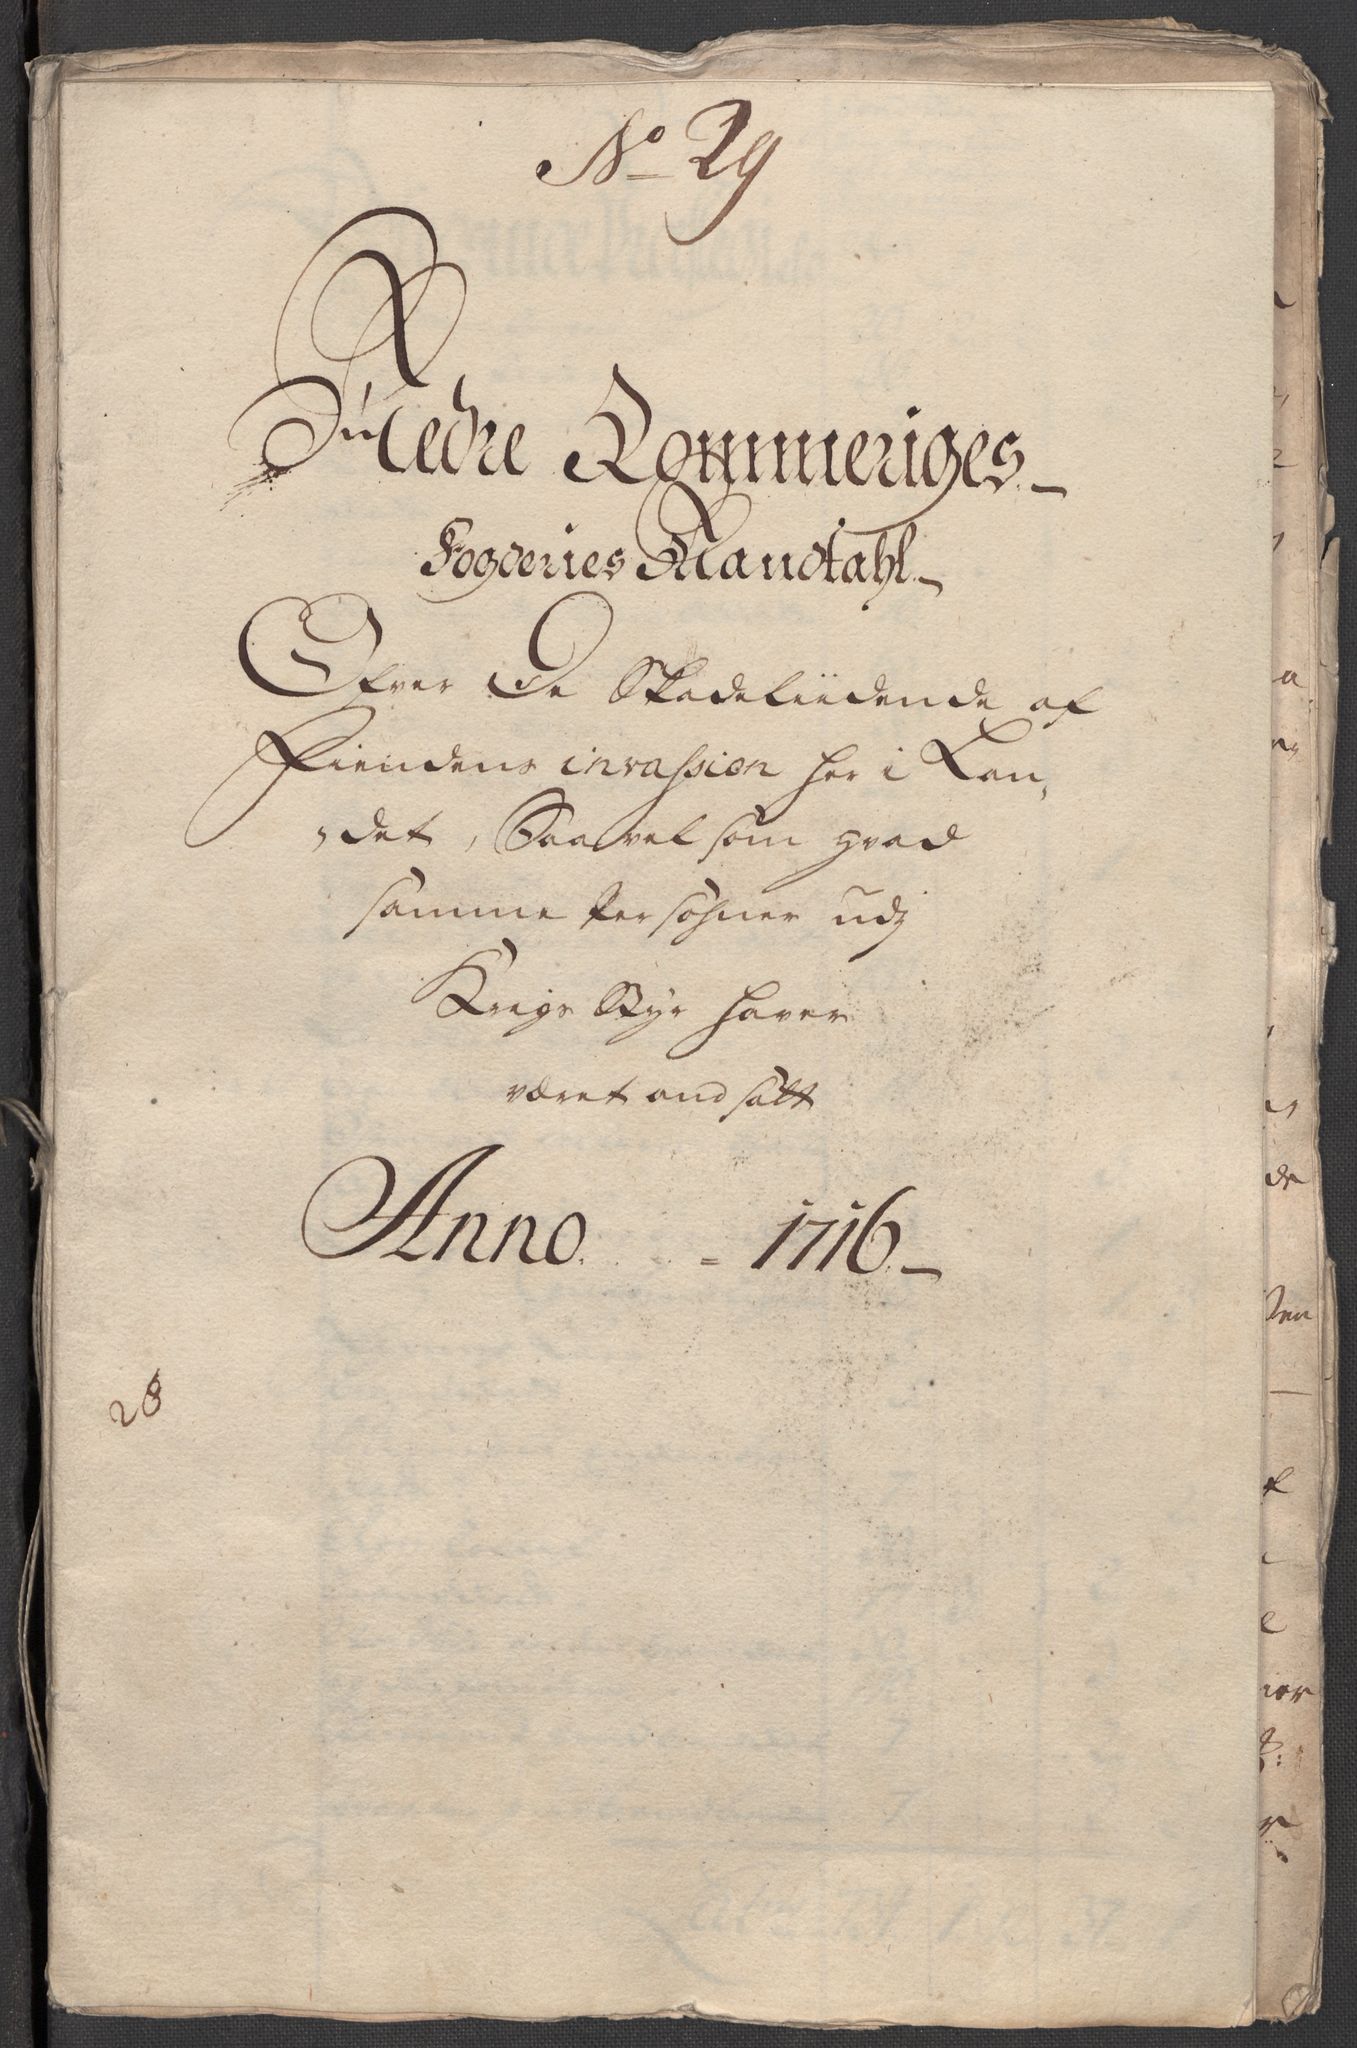 No 29
Nedre Rommeriges
Fogderies Mandtahl
Ofver De Skadeliidende af
Fiendens invassion her i Lan,
,det, Saavel som hvad
samme Persohner udj
Krigs Styr haver
været andsatt
Anno 1716
28